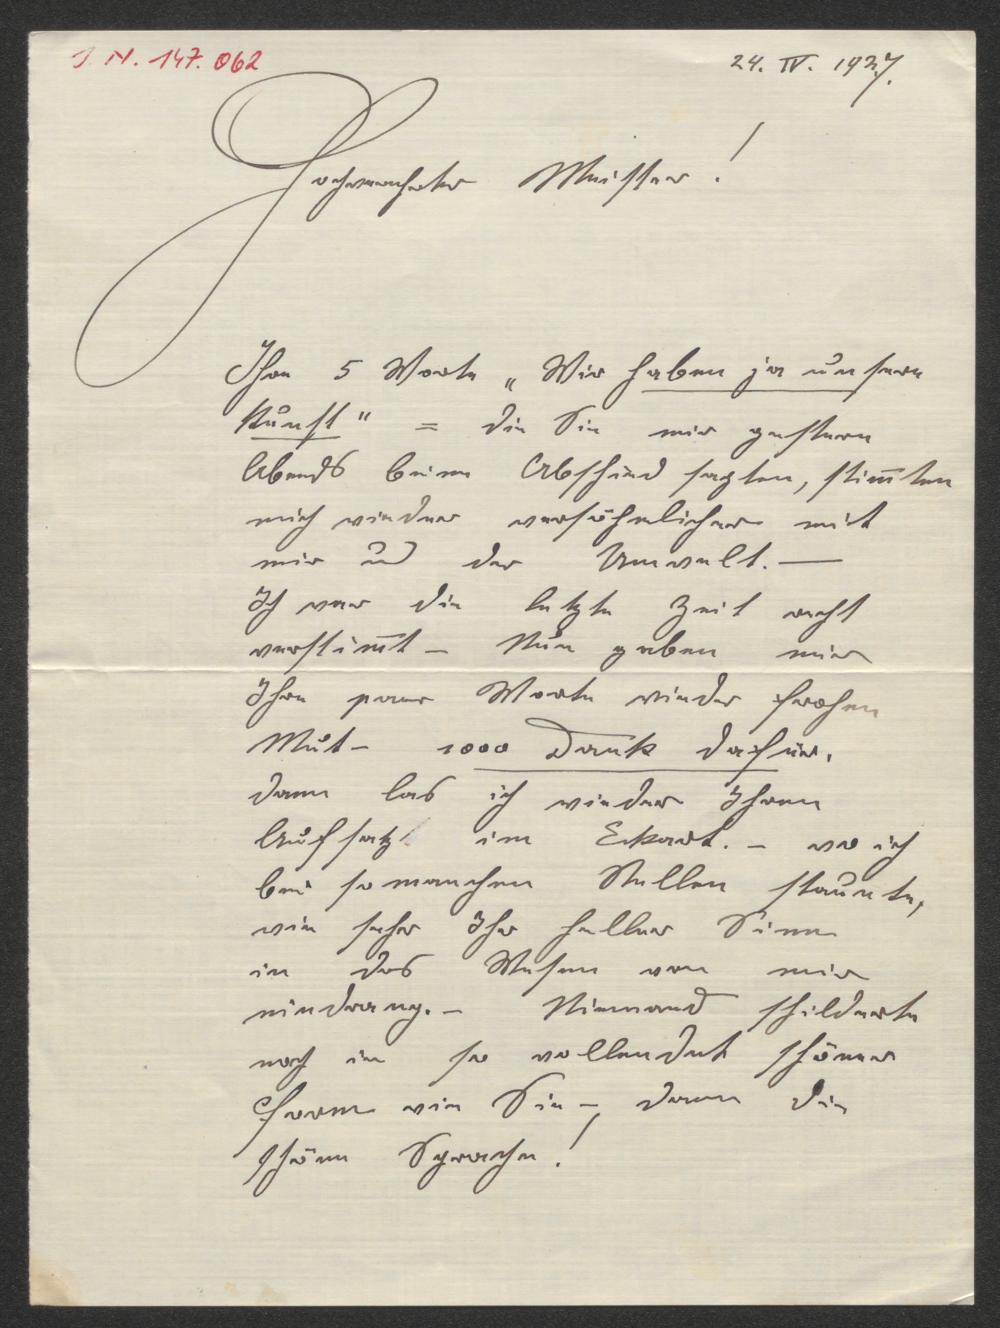 J. N. 147.062
24. IV. 1937.
Hochverehrter Meister!
Ihre 5 Worte „Wir haben ja unsere
Kunst" = die Sie mir gestern
Abends beim Abschied sagten, stim̅ten
mich wieder versöhnlicher mit
mir und der Umwelt. —
Ich war die letzte Zeit recht
verstim̅t – Nun gaben mir
Ihre paar Worte wieder frohen
Mut – 1000 Dank dafür.
Dann las ich wieder Ihren
Aufsatz im Eckart. – wo ich
bei so manchen Stellen staunte,
wie sehr Ihr heller Sinn
in das Wesen von mir
eindrang. – Niemand schilderte
noch in so vollendet schöner
Form wie Sie –, dann die
schöne Sprache!